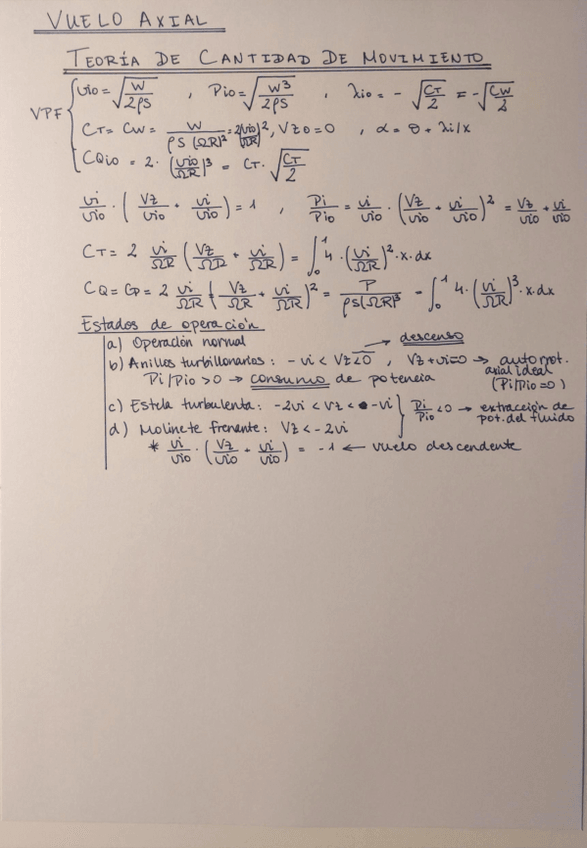 VUELO AXIAL
TEORÍA DE CANTIDAD DE MOVIMIENTO
VPF { vio = √(W/2ρS) , Pio = √(W³/2ρS) , λio = - √(CT/2) = - √(CW/2)
CT = CW = W/(ρS(ΩR)²) = 2(vio/ΩR)², Vz0 = 0 , α = θ + λi/x
CQio = 2 · (vio/ΩR)³ = CT · √(CT/2)
vi/vio · (Vz/vio + vi/vio) = 1 , Pi/Pio = vi/vio · (Vz/vio + vi/vio)² = Vz/vio + vi/vio
CT = 2 vi/ΩR (Vz/ΩR + vi/ΩR) = ∫₀¹ 4 · (vi/ΩR)² · x · dx
CQ = CP = 2 vi/ΩR (Vz/ΩR + vi/ΩR)² = P/(ρS(ΩR)³) = ∫₀¹ 4 · (vi/ΩR)³ · x · dx
Estados de operación
a) Operación normal
→ descenso
b) Anillos turbillonarios: -vi < Vz < 0 , Vz + vi = 0 → autorrot. axial ideal (Pi/Pio = 0)
Pi/Pio > 0 → consumo de potencia
c) Estela turbulenta: -2vi < Vz < -vi } Pi/Pio < 0 → extracción de pot. del fluido
d) Molinete frenante: Vz < -2vi
* vi/vio · (Vz/vio + vi/vio) = -1 ← vuelo descendente